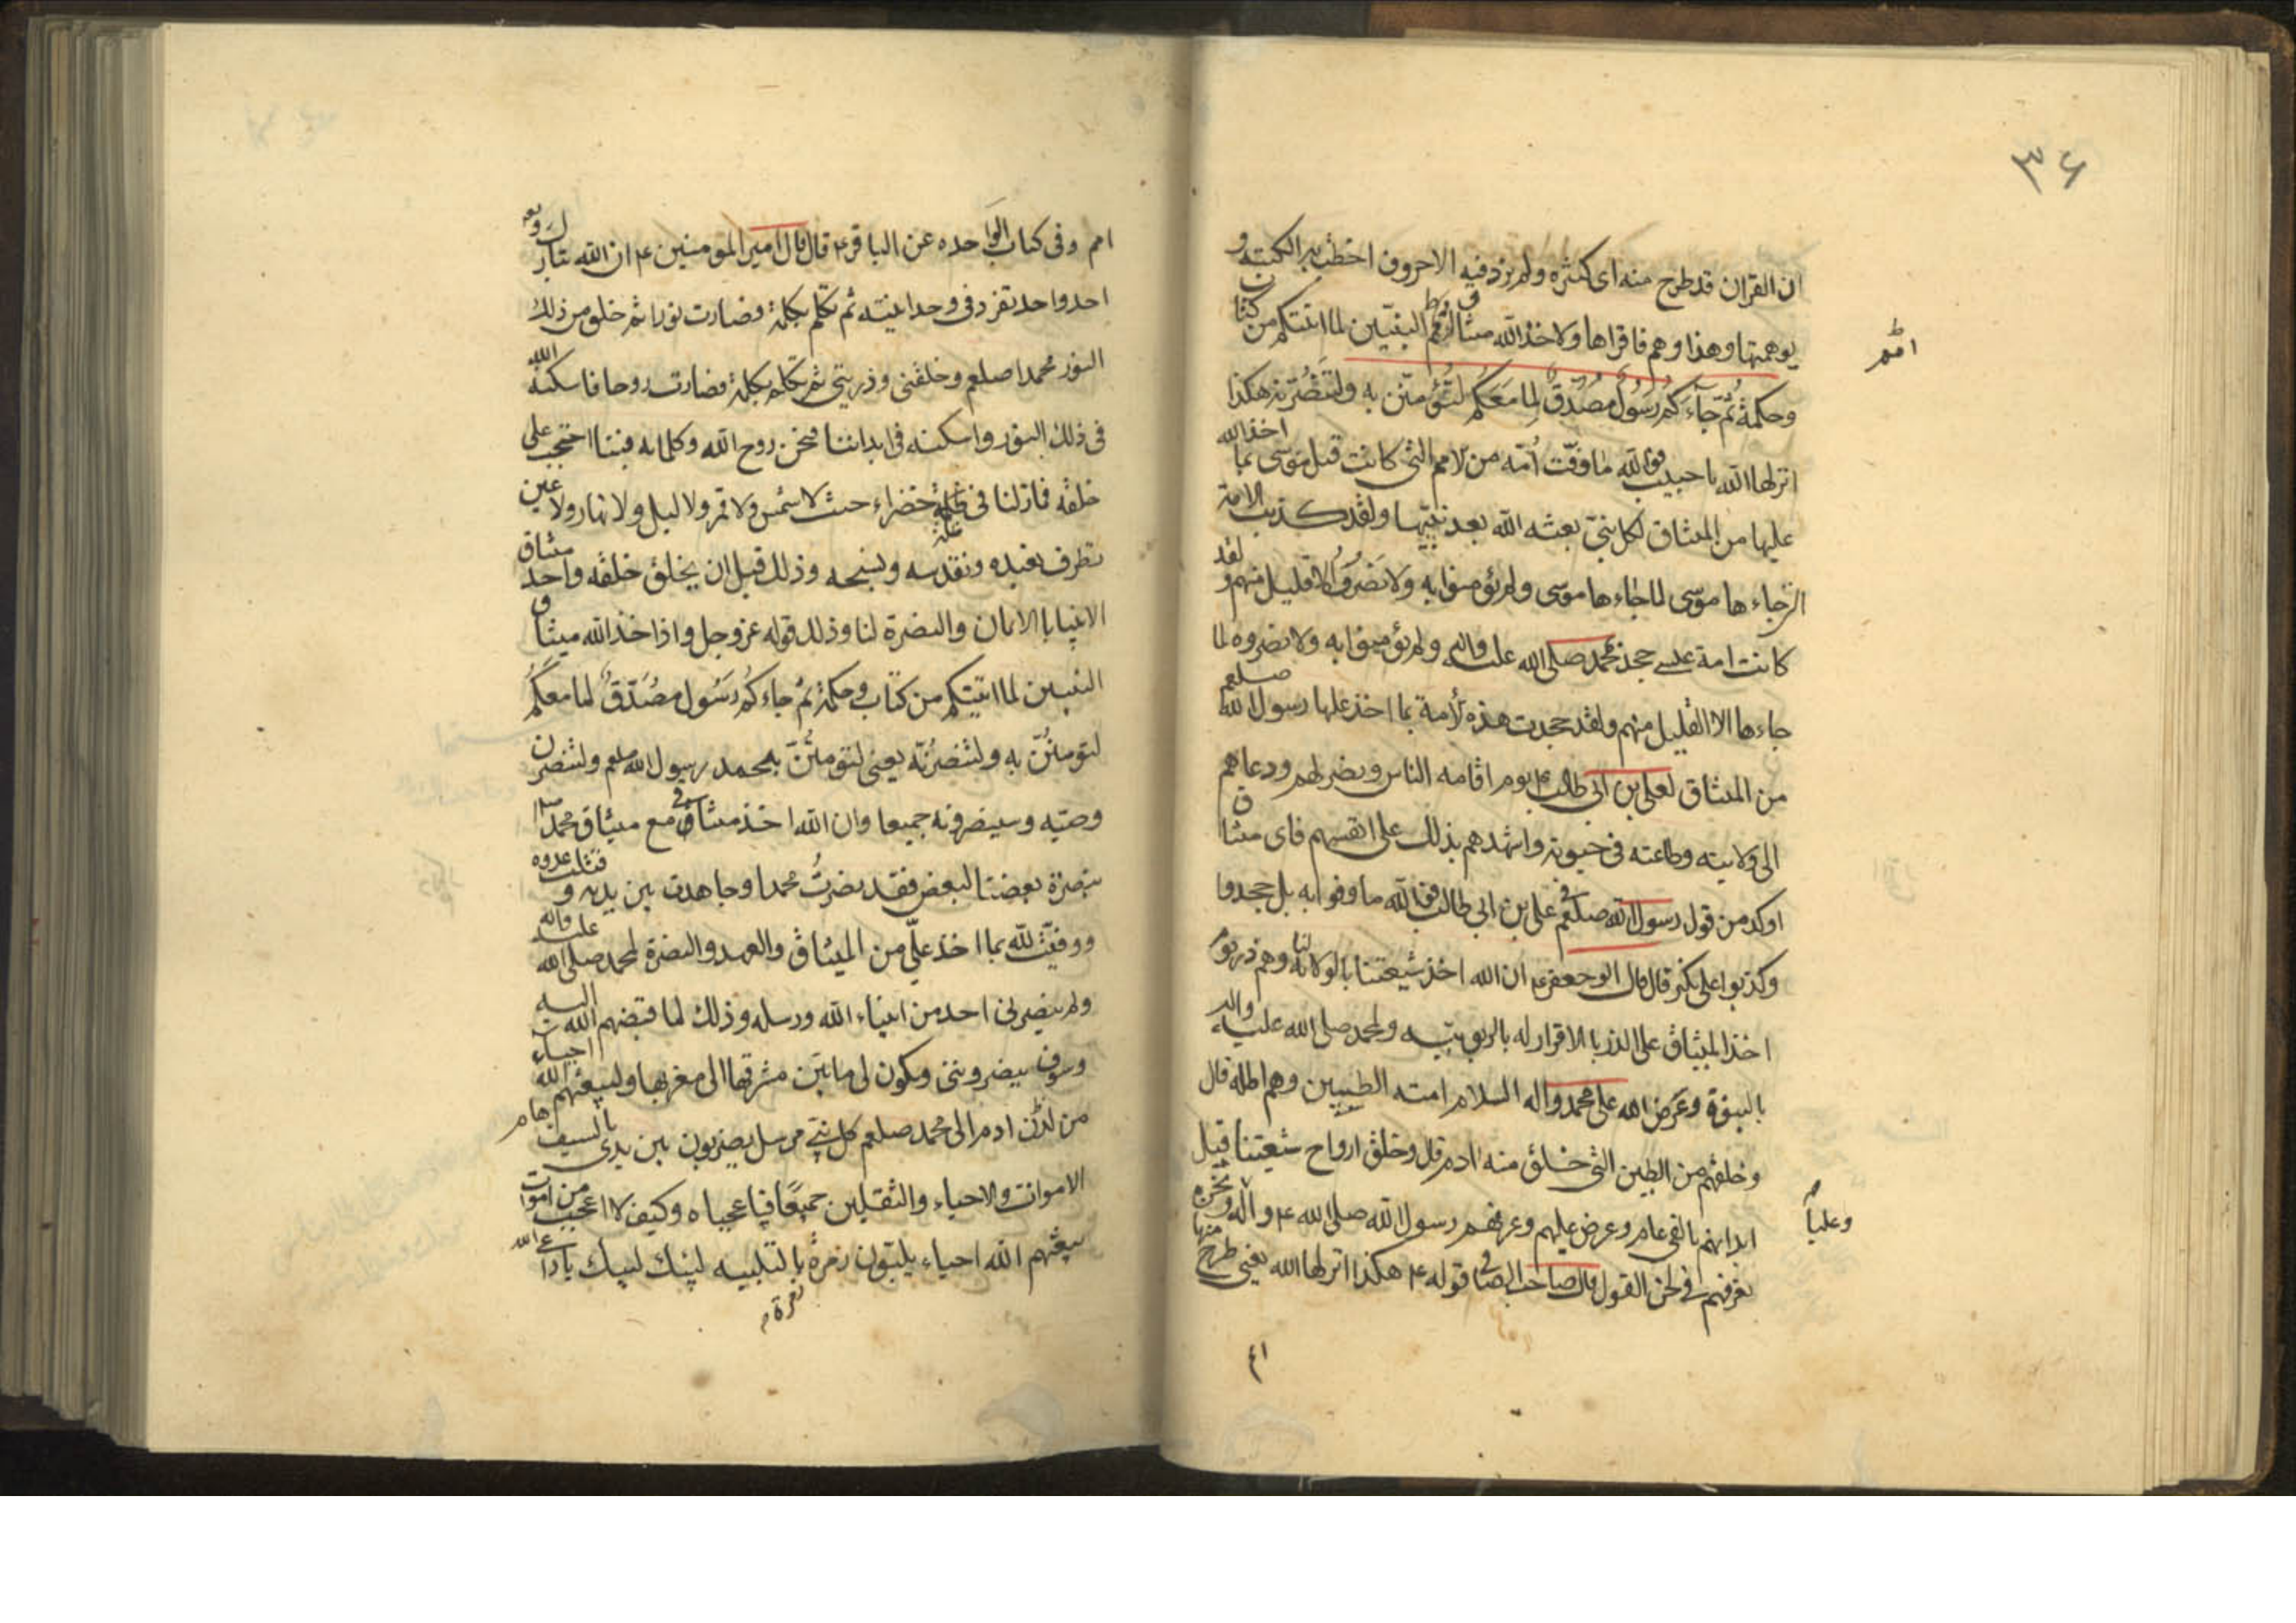 ٣٤
ان القران قد طرح منه اى كثيره ولم يزد فيه الا حروف اخطب بها الكتبه و
يوهمتها وهذا وهم فاقراها واذ اخذ الله ميثاق امم النبيين لما اتيتكم من كتاب
امم
وحكمة ثُمّ جآءَ كُم رَسُولٌ مُصَدِّقٌ لِما مَعَكُم لَتُؤمِنُنّ به ولتنصُرنه هكذا
انزلها الله يا حبيب فوالله ما وفّت اُمّة من الامم التى كانت قبل موسى بما اخذ الله
عليها من الميثاق لكل نبيّ بعثه الله بعد نبيّها ولقد كذبت الامة
التى جاءها موسى لما جاءها موسى ولم يؤمنوا به ولا نصَرُوه الا قليل منهم ولقد
كانت امة عيسى جحد محمد صلى الله عليه واله ولم يؤمنوا به ولا نصروه لما
جاءها الا القليل منهم ولقد جحدت هذه الامة بما اخذ عليها رسول الله صلعم
من الميثاق لعلى بن ابى طالب ع يوم اقامه الناس ونصبه لهم ودعاهم
الى ولايته وطاعته فى حيوته واشهدهم بذلك على انفسهم فاى ميثاق
اوكد من قول رسول الله صلعم فى على بن ابى طالب فوالله ما وفوا به بل جحدوا
وكذبوا على بكير قال قال ابو جعفر ع ان الله اخذ شيعتنا بالولاية لنا وهم ذر يوم
اخذ الميثاق على الذر بالاقرار له بالربوبيّه ولمحمد صلى الله عليه واله
بالنبوة وعرض الله على محمد واله السلام امته الطيبين وهم اظله قال
وخلقهم من الطين التى خلق منه ادم قال وخلق ارواح شيعتنا قبل
ابدانهم بالفى عام وعرض عليهم وعرفهم رسول الله صلى الله ع واله ونحن
وعلياً
نعرفهم فى لحن القول قال صاحب الصافى قوله ع هكذا انزلها الله يعنى طرح منها
٤١
امم وفى كتاب الواحده عن الباقر ع قال قال امير المومنين ع ان الله تبارك وتعـ
احد واحد تفرد فى وحدانيته ثم تكلم بكلمة فصارت نورا ثم خلق من ذلك
النور محمدا صلعم وخلقنى وذريتى ثم تكلم بكلمة فصارت روحا فاسكنه الله
فى ذلك النور واسكنه فى ابداننا فنحن روح الله وكلماته فبنا احتجب على
خلقه فما زلنا فى ظلة خضراء حيث لا شمس ولا قمر ولا ليل ولا نهار ولا عين
تطرف نعبده ونقدسه ونسبحه وذلك قبل ان يخلق خلقه واخذ ميثاق
الانبيا بالايمان والنصرة لنا وذلك قوله عز وجل واذ اخذ الله ميثاق
النبيين لما اتيتكم من كتاب وحكمة ثم جاءكُم رَسُول مصُدّقٌ لما معَكُم
لتومنُنّ به ولتنصرُنّه يعنى لتؤمننّ بمحمد رسول الله صلعم ولتنصرن
وصيّه وسينصرونه جميعا وان الله اخذ ميثاقى مع ميثاق محمد
بنصرة بعضنا لبعض فقد نصرتُ محمدا وجاهدت بين يديه وقتلت عدوه
ووفيّت لله بما اخذ علىّ من الميثاق والعهد والنصرة لمحمد صلى الله عليه واله
ولم ينصرنى احد من انبياء الله ورسله وذلك لما قبضهم الله اليه
وسوف ينصروننى ويكون لى ما بين مشرقها الى مغربها وليبعثهم الله احياء
من لدُن ادم الى محمد صلعم كل نبىّ مرسل يضربون بين يدى بالسيف هام
الاموات والاحياء والثقلين جميعًا فيا عجباه وكيف لا اعجب من اموات
يبعثهم الله احياء يلبّون زمرة بالتلبيه لبيك لبيك يا داعى الله
زمرة